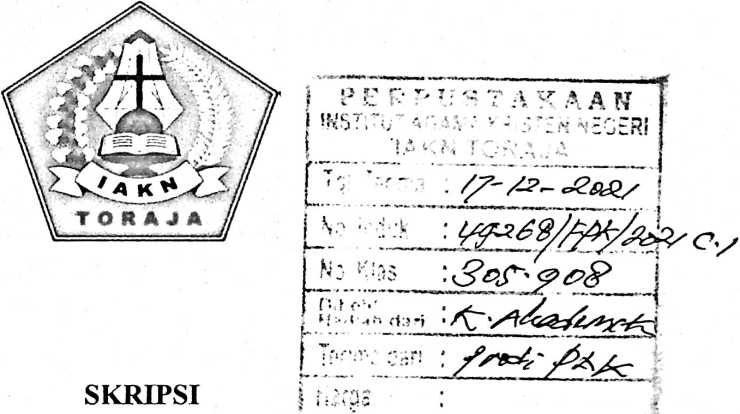 IAKN
TORAJA
PERPUSTAKAAN
INSTITUT AGAMA KRISTEN NEGERI
IAKN TORAJA
Tgl Terima : 17-12-2021
No Induk : 49268/FPK/2021 C.1
No Klas : 305.908
Dibeli
Hadiah dari : K. Akademik
Terima dari : prodi PAK
Harga :
SKRIPSI